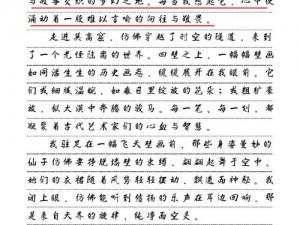 与故事交织的梦幻之地。每当我想起它，心中便
涌动着一股难以言喻的向往与敬畏。
走进莫高窟，仿佛穿越了时空的隧道，来到
了一个光怪陆离的世界。四壁之上，一幅幅壁画
如同活生生的历史画卷，缓缓展开在我眼前。它
们或细腻温婉，如春日里绽放的花朵；或粗犷豪
放，似大漠中奔腾的骏马。每一笔，每一划，都
凝聚着古代艺术家们的心血与智慧。
我驻足在一幅飞天壁画前，那些身姿曼妙的
仙子仿佛要挣脱墙壁的束缚，翩翩起舞于空中。
她们的衣裙随着风势轻轻摆动，飘逸而神秘。我
闭上眼，仿佛能听到悠扬的乐声在耳边回响，那
是来自天界的旋律，纯净而空灵。